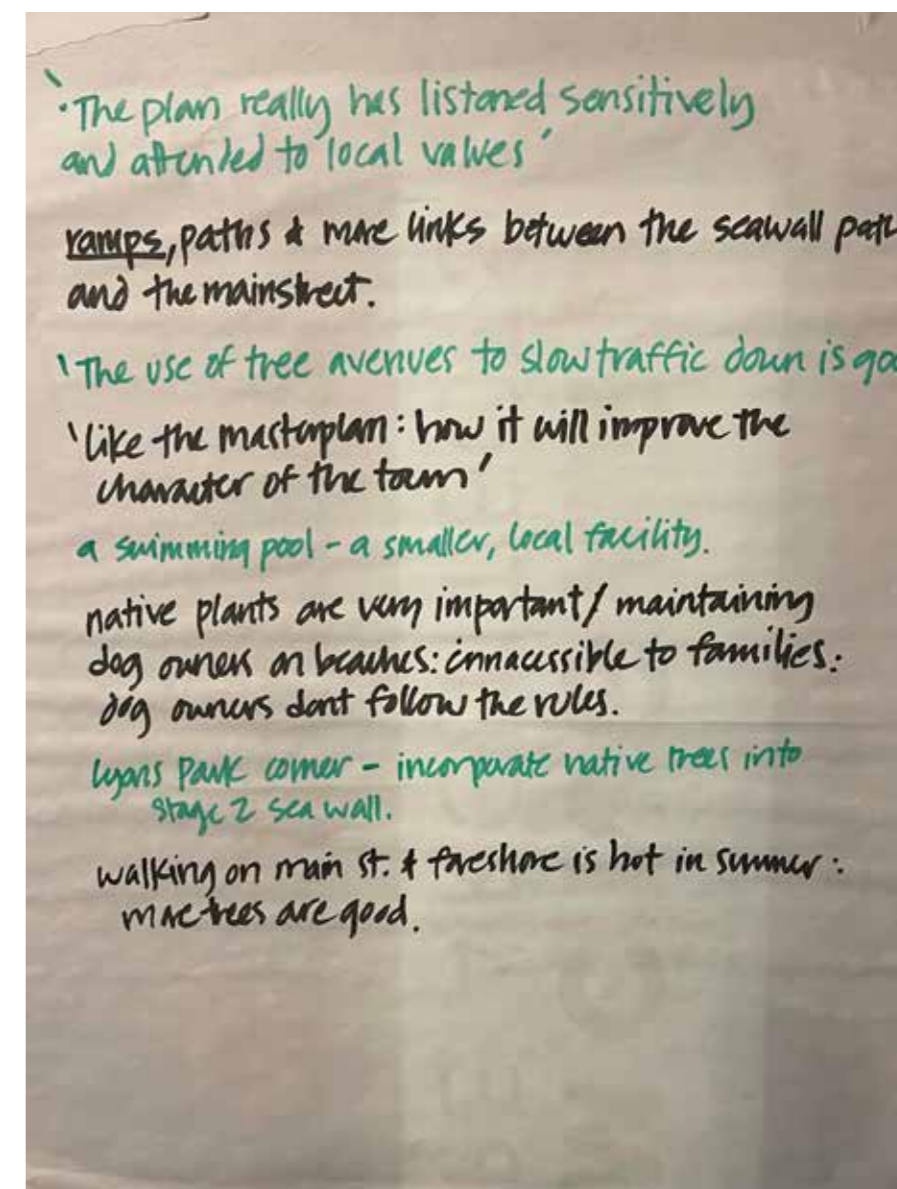 'The plan really has listened sensitively
and attended to local values'
ramps, paths & more links between the seawall path
and the mainstreet.
'The use of tree avenues to slow traffic down is goo
'like the masterplan: how it will improve the
character of the town'
a swimming pool - a smaller, local facility.
native plants are very important/ maintaining
dog owners on beaches: innacessible to families:
dog owners dont follow the rules.
lyons park corner - incorporate native trees into
stage 2 sea wall.
walking on main st. & foreshore is hot in summer:
more trees are good.